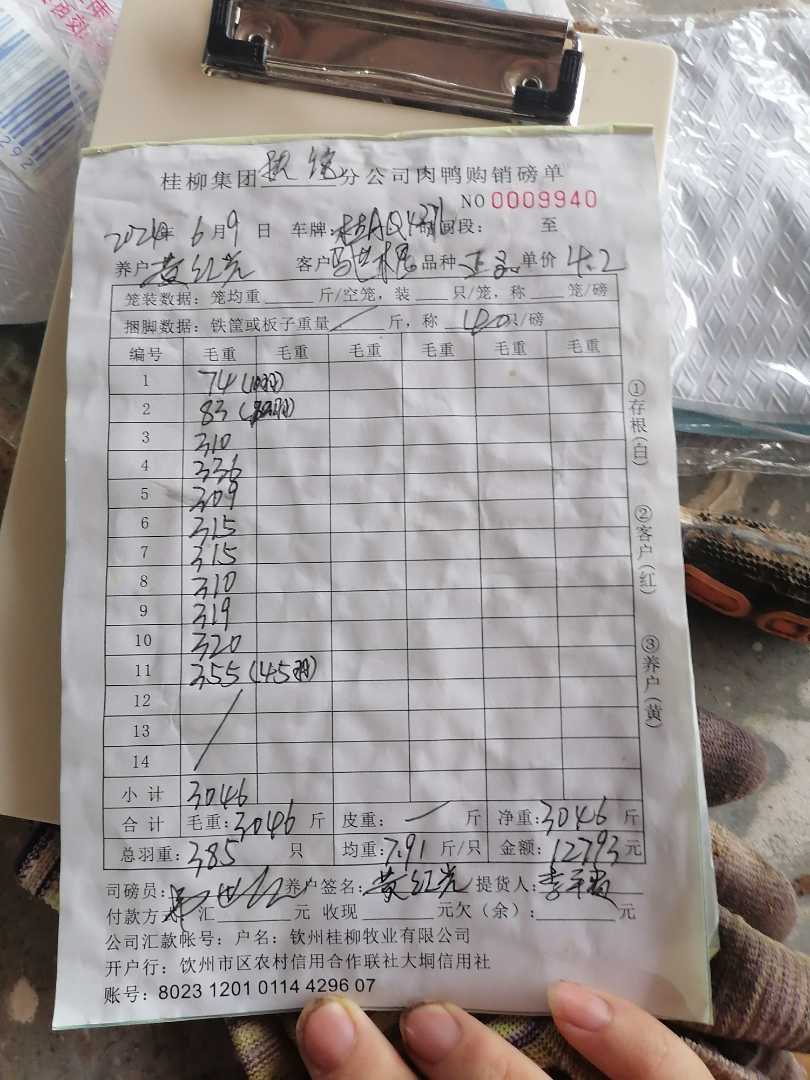 桂柳集团 分公司肉鸭购销磅单
NO 0009940
2024年 6月9日 车牌: 时间段: 至
养户 黄红光 客户 品种 单价 4.2
笼装数据: 笼均重 斤/空笼, 装 只/笼, 称 笼/磅
捆脚数据: 铁筐或板子重量 / 斤, 称 40只/磅
编号 毛重 毛重 毛重 毛重 毛重 毛重
1 74 (10羽)
2 83
3 310
4 336
5 309
6 315
7 315
8 310
9 319
10 320
11 355 (45羽)
12
13
14
小计 3046
合计 毛重: 3046 斤 皮重: 一 斤 净重: 3046 斤
总羽重: 385 只 均重: 7.91 斤/只 金额: 12793 元
司磅员: 养户签名: 黄红光 提货人:
付款方式 汇 元 收现 元欠(余): 元
公司汇款帐号: 户名: 钦州桂柳牧业有限公司
开户行: 钦州市区农村信用合作联社大垌信用社
账号: 8023 1201 0114 4296 07
①存根(白)
②客户(红)
③养户(黄)